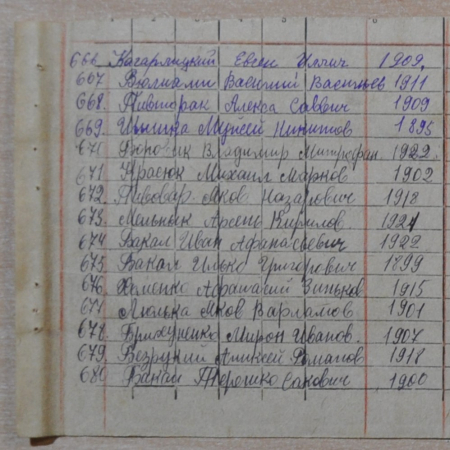 666 Кагарлицкий Евсей Ильич 1909
667 Василий Васильев 1911
668. Пивторак Алекса Саввич 1909
669. Никитов 1895
670 Боровик Владимир Митрофан. 1922.
671 Красюк Михаил Марков 1902
672. Пивовар Яков Назарович 1918
673. Мельник Арсень Кирилов. 1921
674. Бакал Иван Афанасьевич 1922
675. Бакал Илько Григорович 1899
676 Хоменко Афанасий Зиньков 1915
677 Люлька Яков Варламов 1901
678. Брихуненко Мирон Иванов. 1907
679. Безрукий Алексей Романов 1918
680. Терешко Сакович 1900